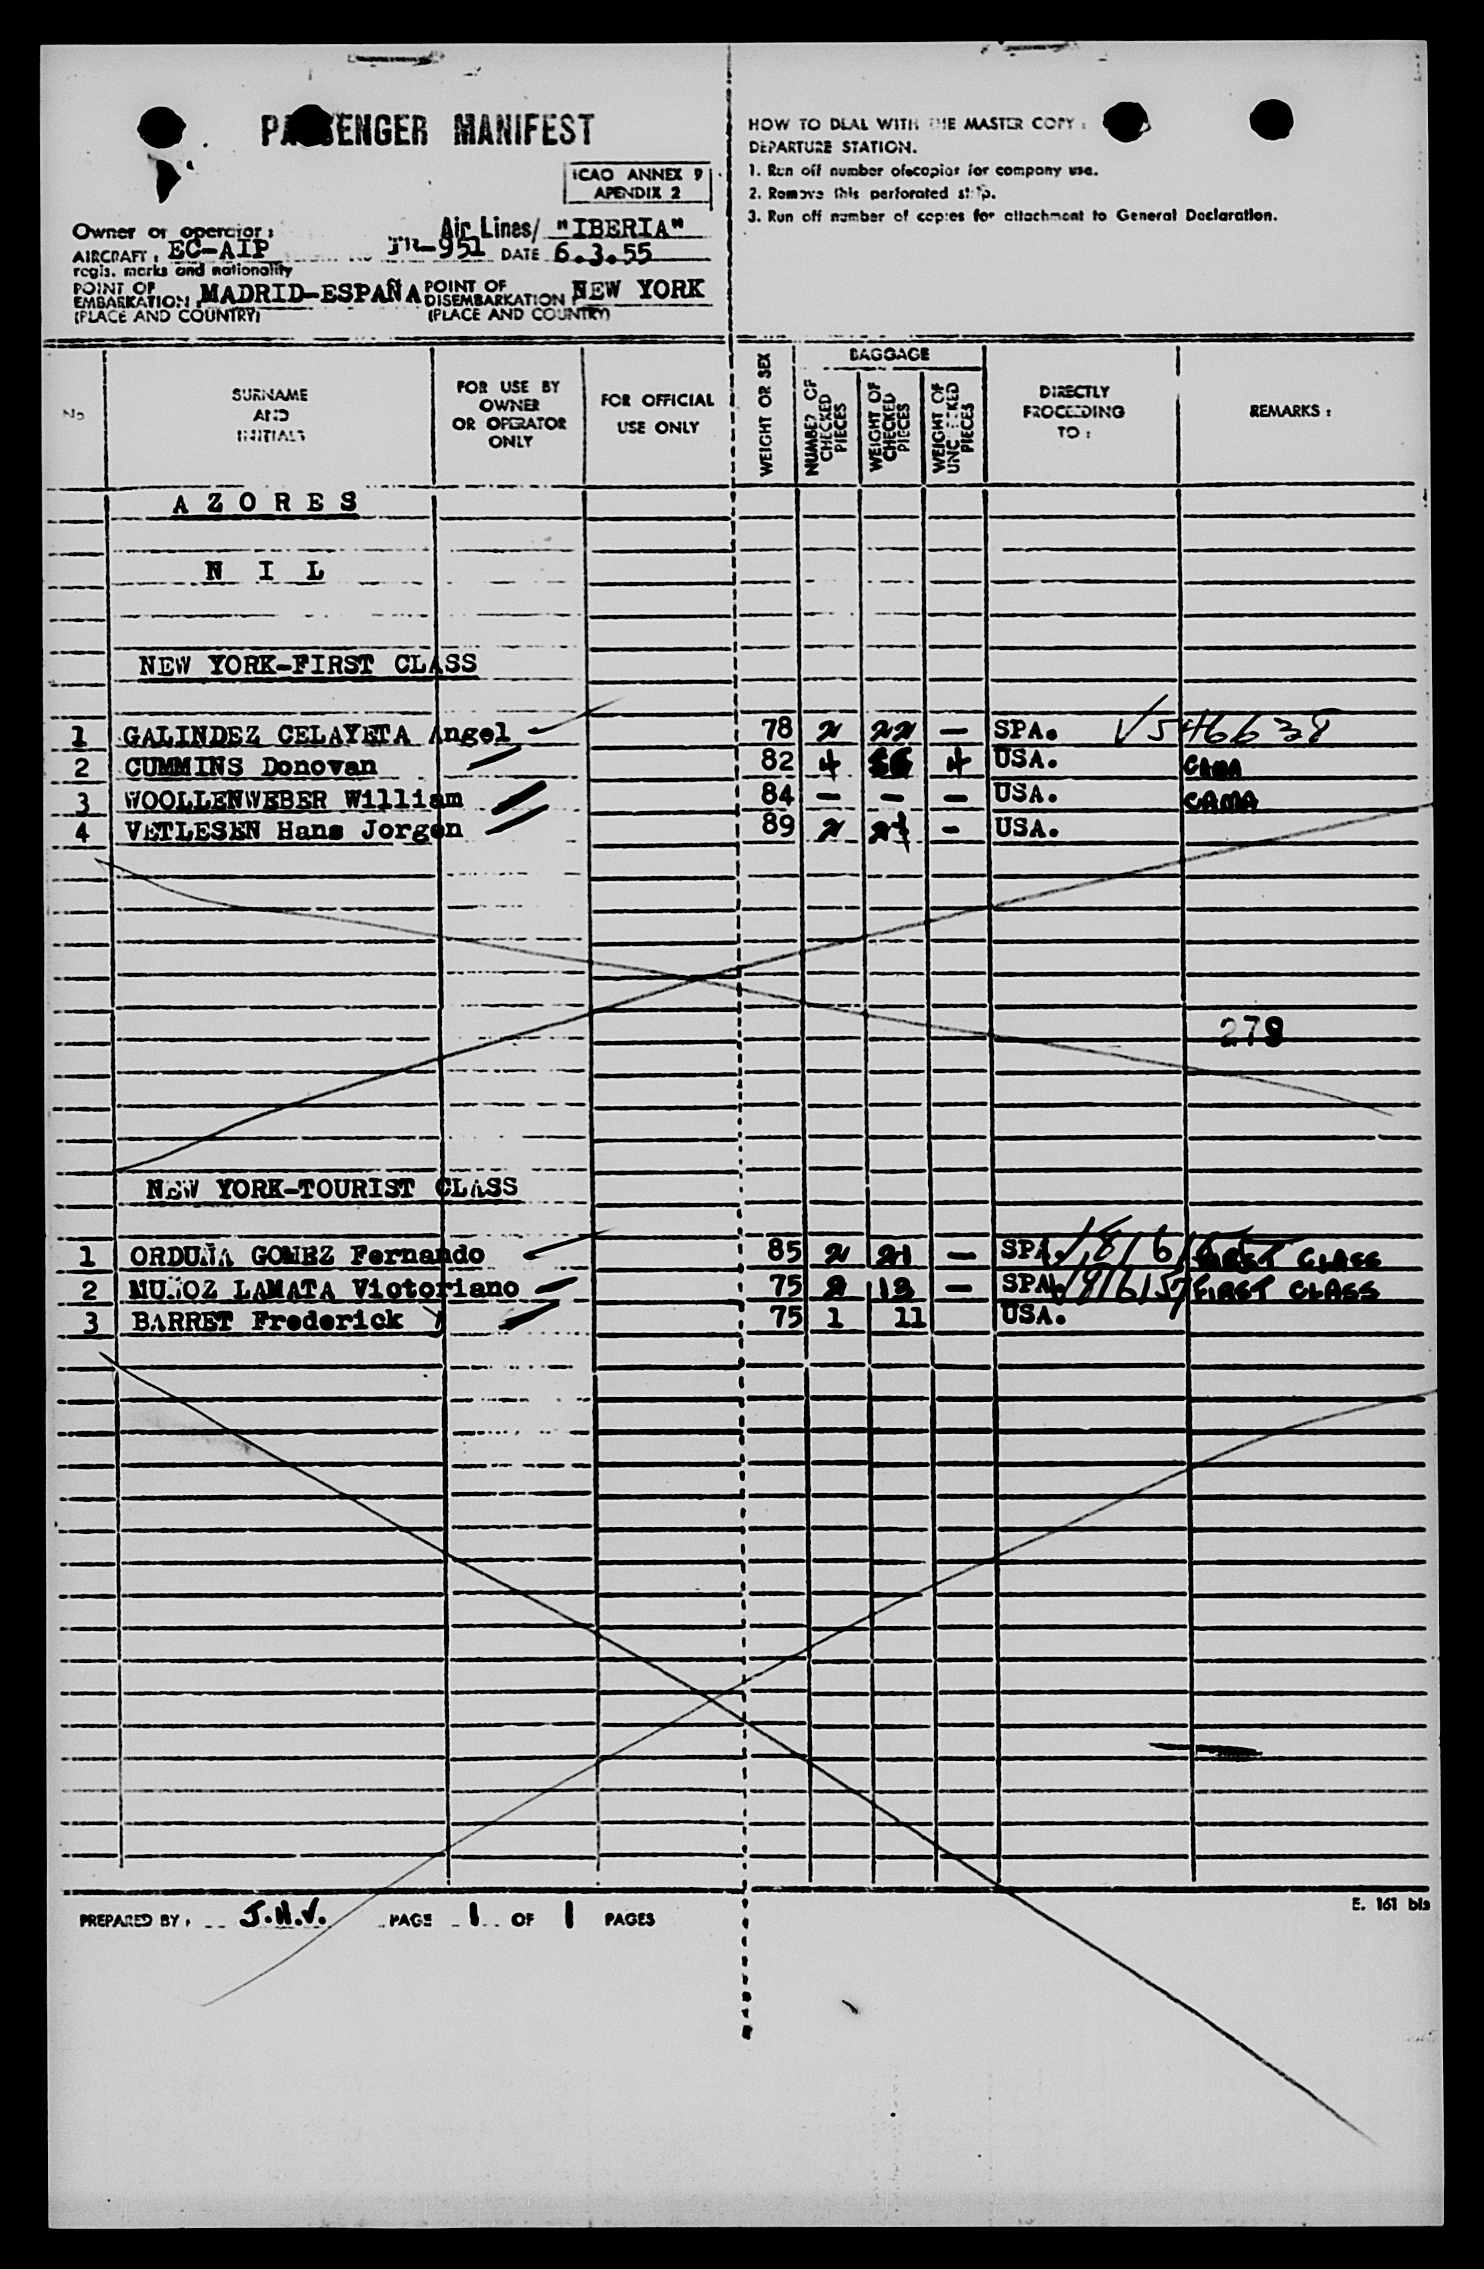 PASSENGER MANIFEST
ICAO ANNEX 9
APENDIX 2
Owner or operator: Air Lines/ "IBERIA"
AIRCRAFT: EC-AIP IB-951 DATE 6.3.55
regis. marks and nationality
POINT OF EMBARKATION: MADRID-ESPAÑA POINT OF DISEMBARKATION: NEW YORK
(PLACE AND COUNTRY) (PLACE AND COUNTRY)
HOW TO DEAL WITH THE MASTER COPY:
DEPARTURE STATION.
1. Run off number of copies for company use.
2. Remove this perforated strip.
3. Run off number of copies for attachment to General Declaration.
No
SURNAME
AND
INITIALS
FOR USE BY
OWNER
OR OPERATOR
ONLY
FOR OFFICIAL
USE ONLY
WEIGHT OR SEX
BAGGAGE
NUMBER OF
CHECKED
PIECES
WEIGHT OF
CHECKED
PIECES
WEIGHT OF
UNCHECKED
PIECES
DIRECTLY
PROCEEDING
TO:
REMARKS:
AZORES
NIL
NEW YORK-FIRST CLASS
1 GALINDEZ CELAYETA Angel 78 2 22 - SPA. V546638
2 CUMMINS Donovan 82 4 4 USA. CAMA
3 WOOLLENWEBER William 84 - - - USA. CAMA
4 VETLESEN Hans Jorgen 89 2 - USA.
278
NEW YORK-TOURIST CLASS
1 ORDUÑA GOMEZ Fernando 85 2 21 - SPA. FIRST CLASS
2 MUÑOZ LAMATA Victoriano 75 2 - SPA. FIRST CLASS
3 BARRET Frederick 75 1 11 USA.
PREPARED BY: J.H.V. PAGE 1 OF 1 PAGES
E. 161 bis